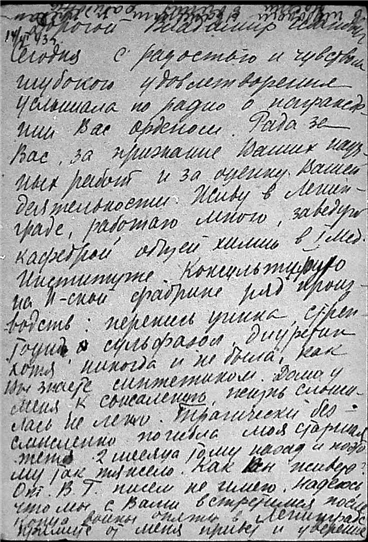 Дорогой Владимир
Сегодня с радостью и чувством
глубокого удовлетворения
услышала по радио о награжде-
нии Вас орденом. Рада за
Вас, за признание Ваших науч-
ных работ и за оценку Вашей
деятельности. Живу в Ленин-
граде, работаю много, заведую
кафедрой общей химии в I Мед.
Институте. Консультирую
на н-ской фабрике ряд произ-
водств:
сульфазол диуретин
хотя никогда и не была, как
вы знаете синтетиком. Дома у
меня к сожалению, жизнь сложи-
лась не легко. Трагически бес-
смысленно погибла моя старшая
2 месяца тому назад и пото
му так тяжело. Как вы живете?
От В. Г. писем не имею. Надеюсь
что мы с Вами встретимся после
конца войны опять в Ленинграде
Примите от меня привет и уверение